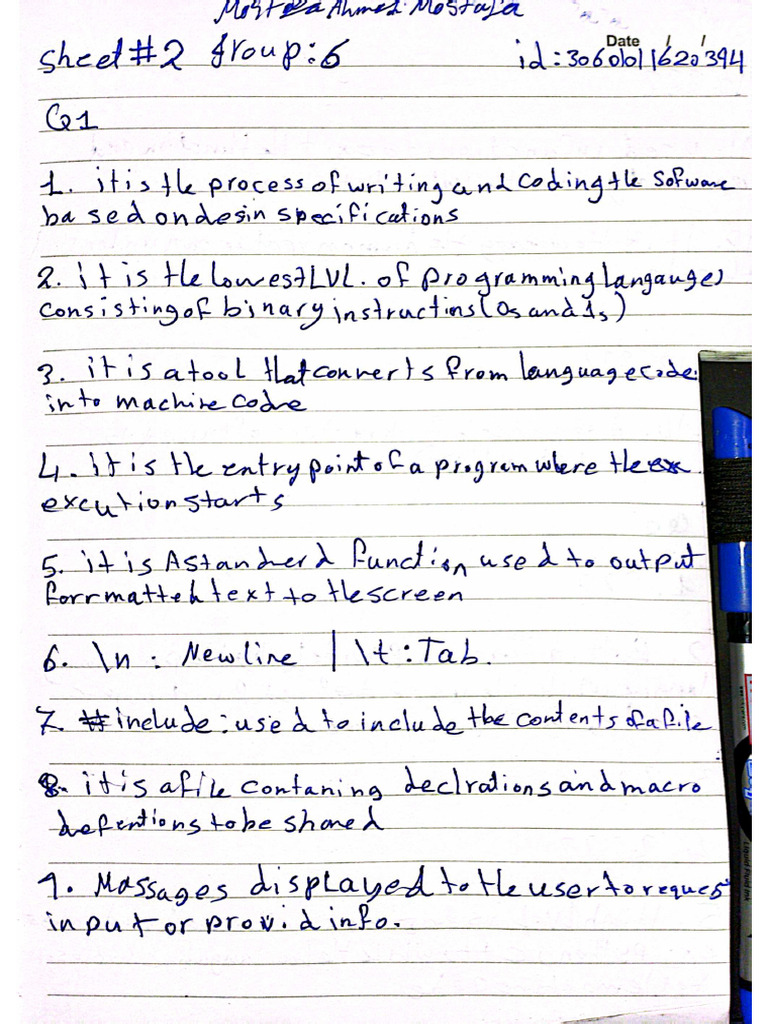 Mostafa Ahmed Mostafa
Sheet #2 group:6 id:30601011620394
Date / /
Q1
1. it is the process of writing and coding the Sofware
based on desin specifications
2. it is the lowest LVL. of programming langauges
consisting of binary instructins (0s and 1s)
3. it is a tool that converts from language code
into machine code
4. it is the entry point of a program where the ex
excution starts
5. it is A standerd function used to output
forrmatteh text to the screen
6. \n : New line | \t : Tab.
7. #include : used to include the contents of a file
8. it is a file contaning declrations and macro
defentions to be shared
9. Massages displayed to the user to request
input or provid info.